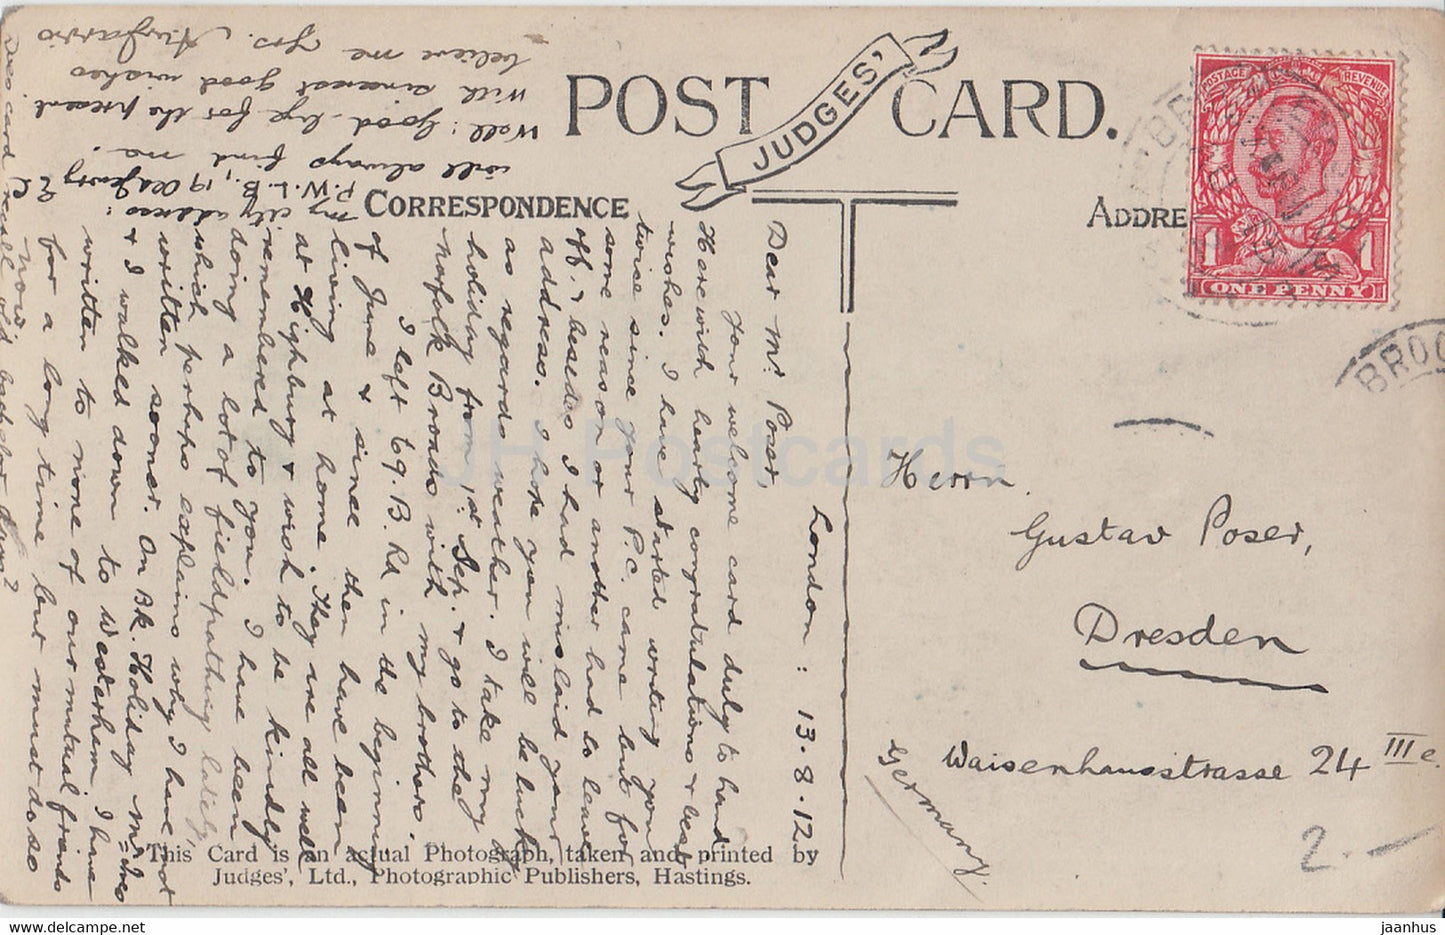 POST CARD.
JUDGES'
CORRESPONDENCE
ADDRE
POSTAGE REVENUE
1 1
ONE PENNY
BROC
London: 13.8.12
Dear Mr. Poser,
Your welcome card duly to hand
Herewith hearty congratulations & best
wishes. I have started writing you
twice since your P.C. came but for
some reason or another had to leave
off. & besides I had mislaid your
address. I hope you will be lucky
as regards weather. I take my
holiday from 1st Sep. & go to the
Norfolk Broads with my brothers.
I left 69. B. Rd in the beginning
of June & since then have been
living at home. They are all well
at Highbury & wish to be kindly
remembered to you. I have been
doing a lot of fieldpathing lately,
which perhaps explains why I have not
written sooner. On Bk. Holiday Mr
& I walked down to Westerham. I have
written to none of our mutual friends
for a long time but must do so
now.
my city address:
P.W.L.B., 19 Old Jewry E.C.
will always find me.
Well: good-bye for the present
With sincerest good wishes
believe me yrs.
Does card recall old
Herrn
Gustav Poser,
Dresden
Waisenhausstrasse 24 III e.
Germany.
2.—
This Card is an actual Photograph, taken and printed by
Judges', Ltd., Photographic Publishers, Hastings.
JH Postcards
www.delcampe.net
jaanhus